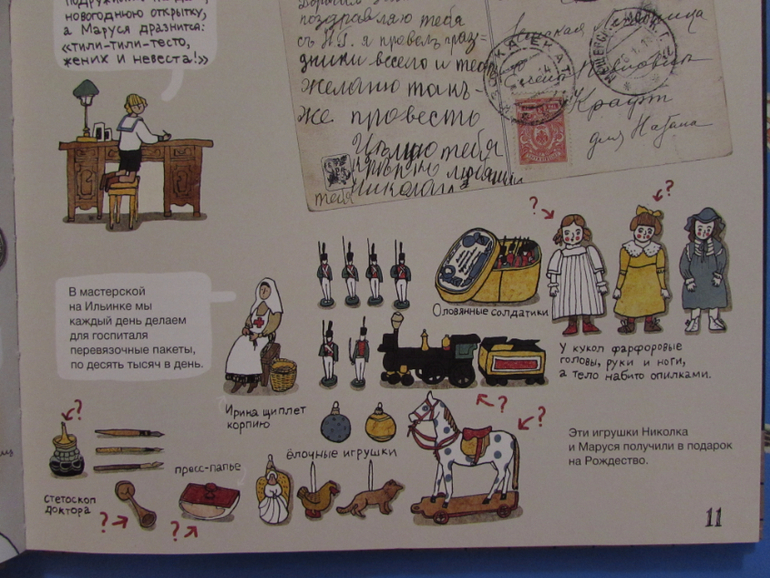 новогоднюю открытку,
а Маруся дразнится:
«тили-тили-тесто,
жених и невеста!»
поздравляю тебя
съ Н.Г. я провелъ праз-
дники весело и тебѣ
желаю такъ
же провесть
Цѣлую тебя
Николай
тебя
Крафт
для Натана
В мастерской
на Ильинке мы
каждый день делаем
для госпиталя
перевязочные пакеты,
по десять тысяч в день.
Ирина щиплет
корпию
Оловянные солдатики
?
?
У кукол фарфоровые
головы, руки и ноги,
а тело набито опилками.
?
?
ёлочные игрушки
Эти игрушки Николка
и Маруся получили в подарок
на Рождество.
?
стетоскоп
доктора
?
пресс-папье
?
11